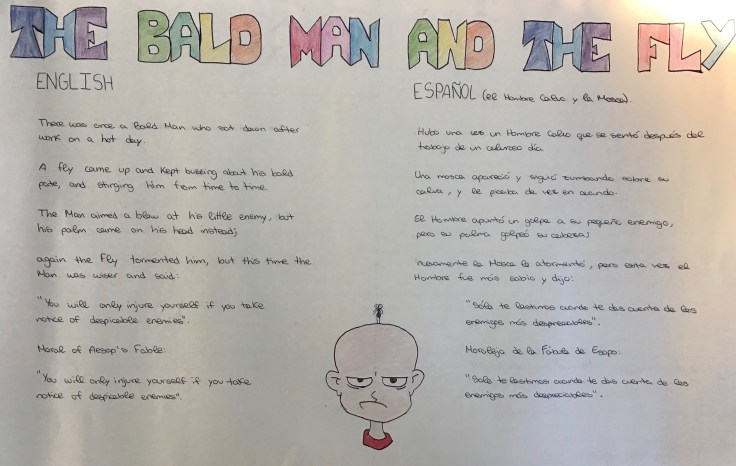 THE BALD MAN AND THE FLY
ENGLISH
There was once a Bald Man who sat down after
work on a hot day.
A fly came up and kept buzzing about his bald
pate, and stinging him from time to time.
The Man aimed a blow at his little enemy, but
his palm came on his head instead;
again the Fly tormented him, but this time the
Man was wiser and said:
"You will only injure yourself if you take
notice of despicable enemies".
Moral of Aesop's Fable:
"You will only injure yourself if you take
notice of despicable enemies".
ESPAÑOL (el Hombre Calvo y la Mosca).
Hubo una vez un Hombre Calvo que se sentó después del
trabajo de un caluroso día.
Una mosca apareció y siguió zumbando sobre su
calva, y le picaba de vez en cuando.
El Hombre apuntó un golpe a su pequeño enemigo,
pero su palma golpeó su cabeza;
nuevamente la Mosca lo atormentó, pero esta vez el
Hombre fue más sabio y dijo:
"Sólo te lastimas cuando te das cuenta de los
enemigos más despreciables".
Moraleja de la Fábula de Esopo:
"Solo te lastimas cuando te das cuenta de los
enemigos más despreciables".